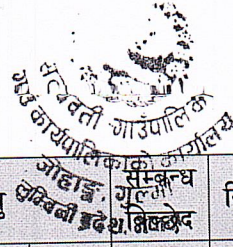 सत्यवती गाउँपालिका
गाउँ कार्यपालिकाको कार्यालय
जोहाङ्ग, गुल्मी
लुम्बिनी प्रदेश, नेपाल
सम्बन्ध
विच्छेद